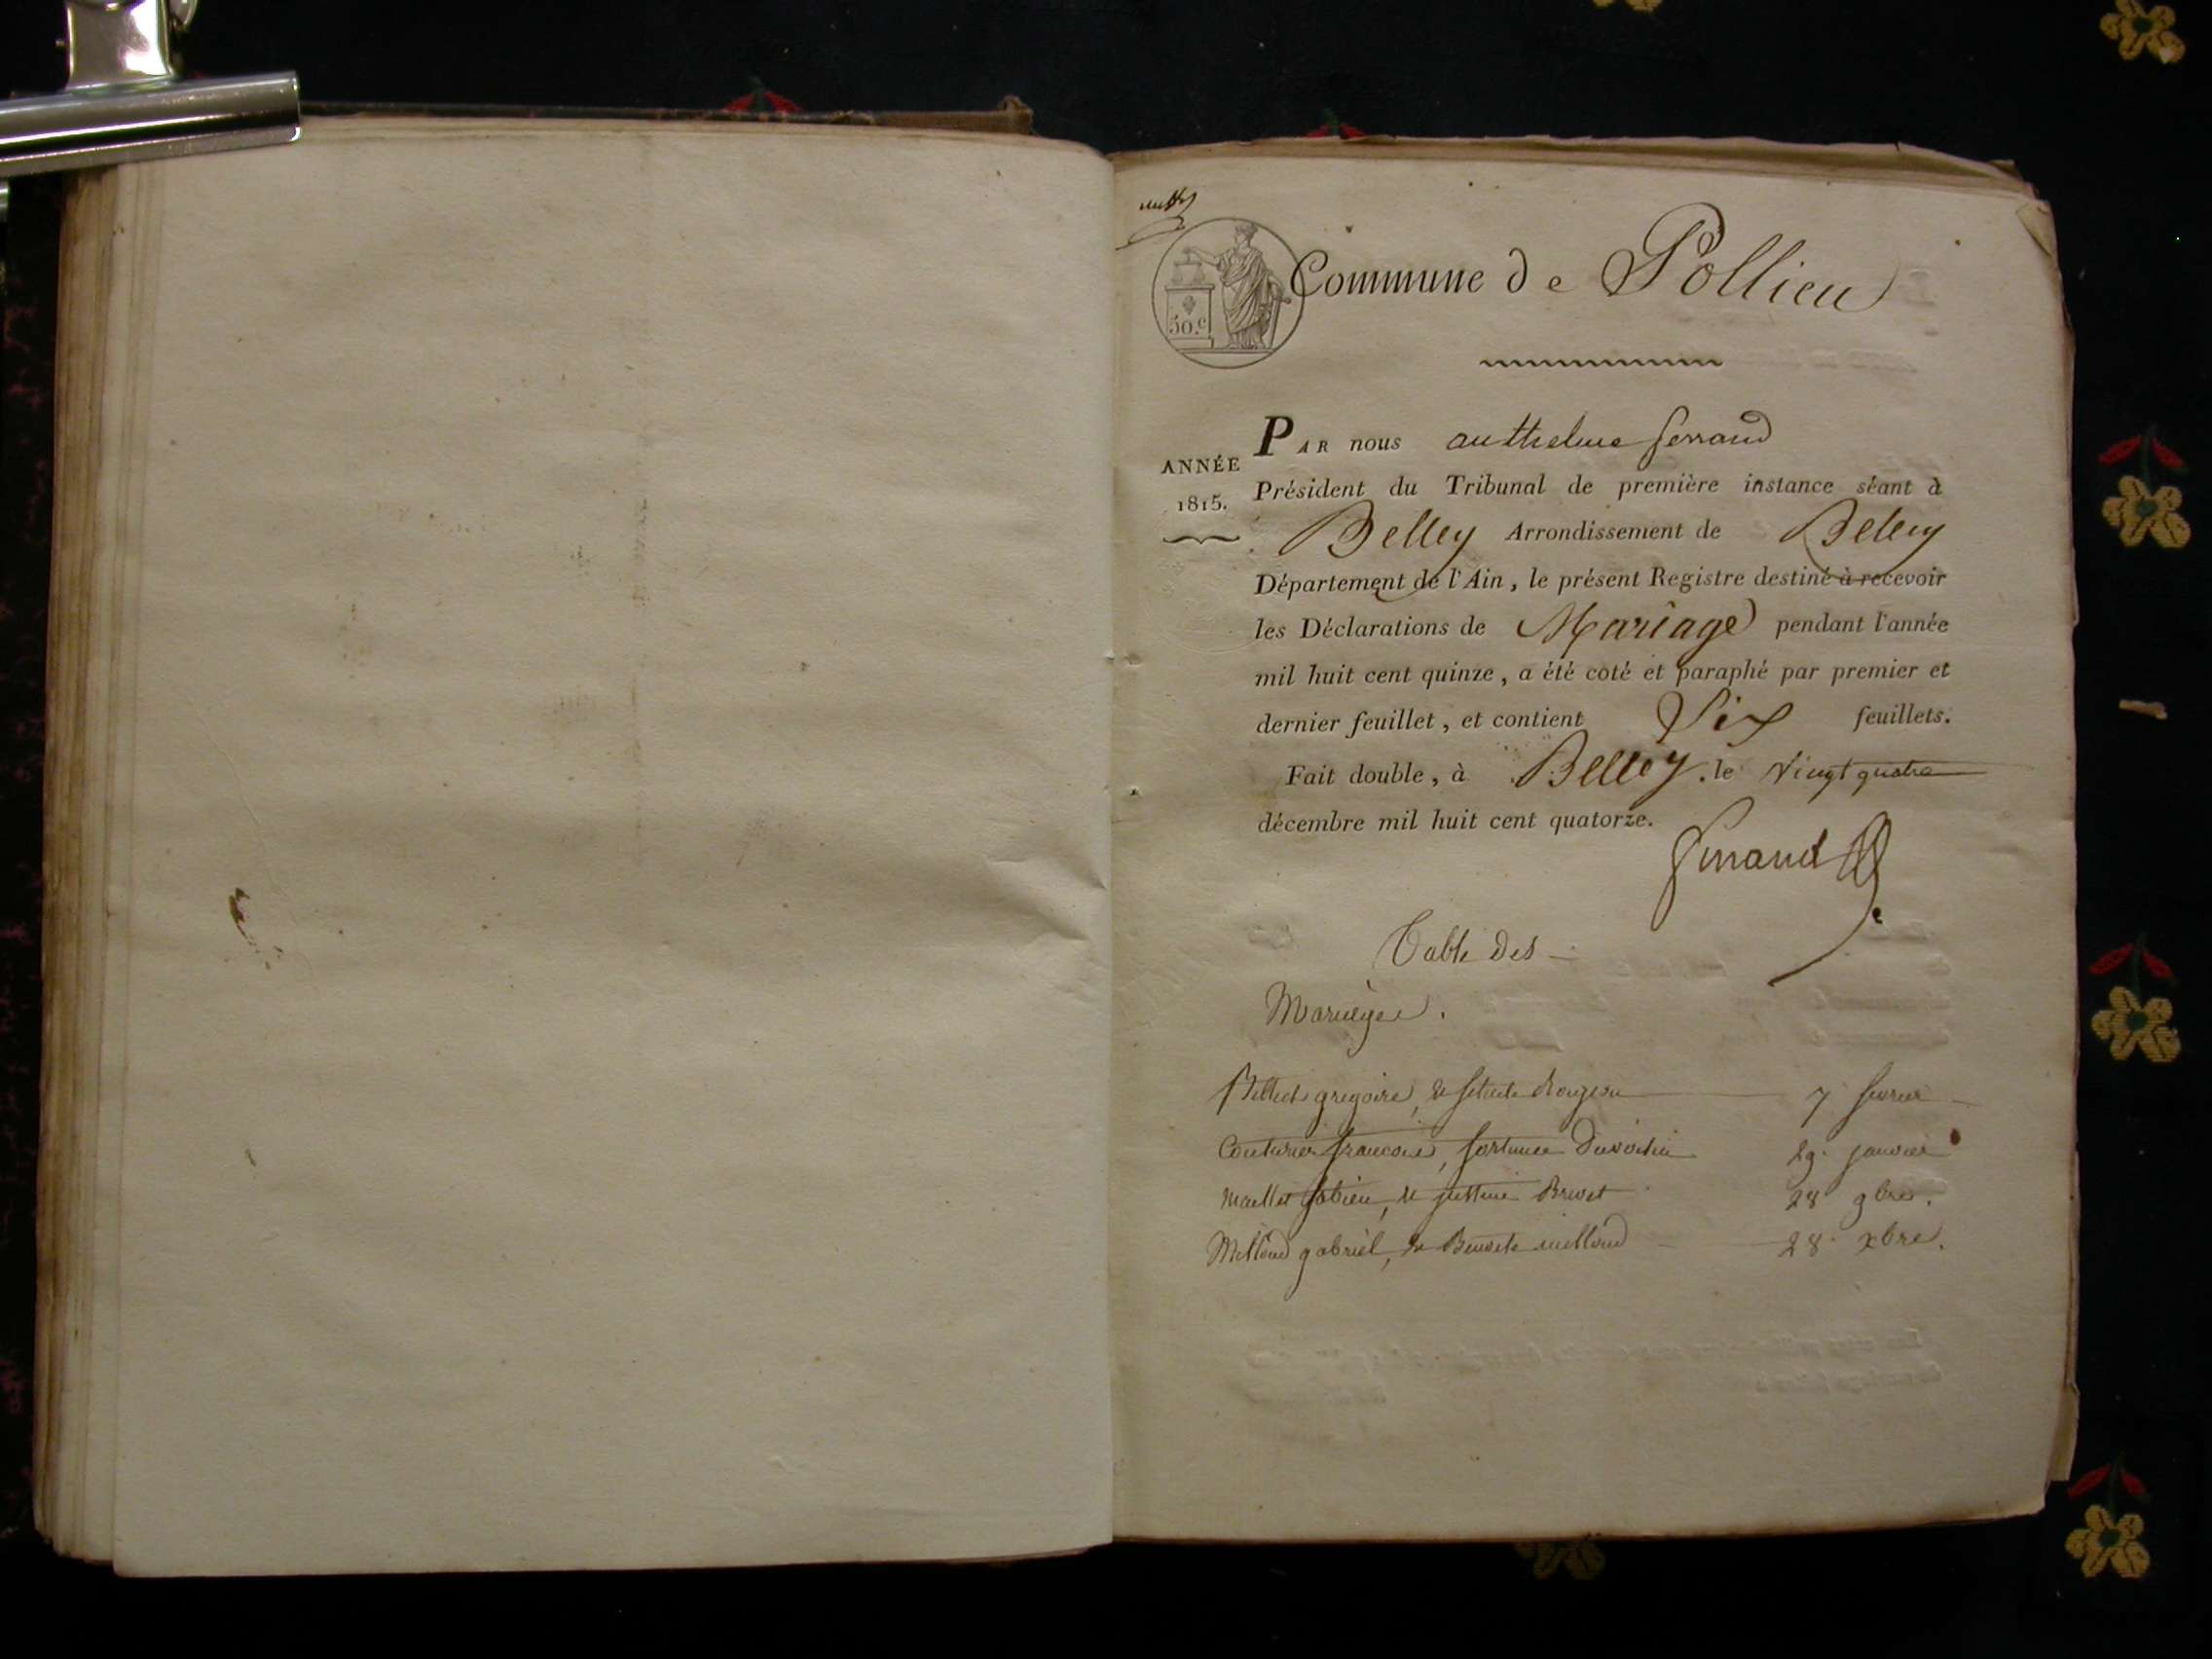 50.c
Commune de Pollieu
PAR nous anthelme ferrand
ANNÉE
1815.
Président du Tribunal de première instance séant à
Belley Arrondissement de Belley
Département de l'Ain, le présent Registre destiné à recevoir
les Déclarations de Mariage pendant l'année
mil huit cent quinze, a été coté et paraphé par premier et
dernier feuillet, et contient Six feuillets.
Fait double, à Belley, le vingt quatre
décembre mil huit cent quatorze.
ferrand
Table des
Mariages.
gregoire, & 7 fevrier
Couturier francois, fortunee 29 janvier
Maillet fabien, & justine Brevet 28 9bre.
Milloud gabriel, & Benoite milloud 28 xbre.